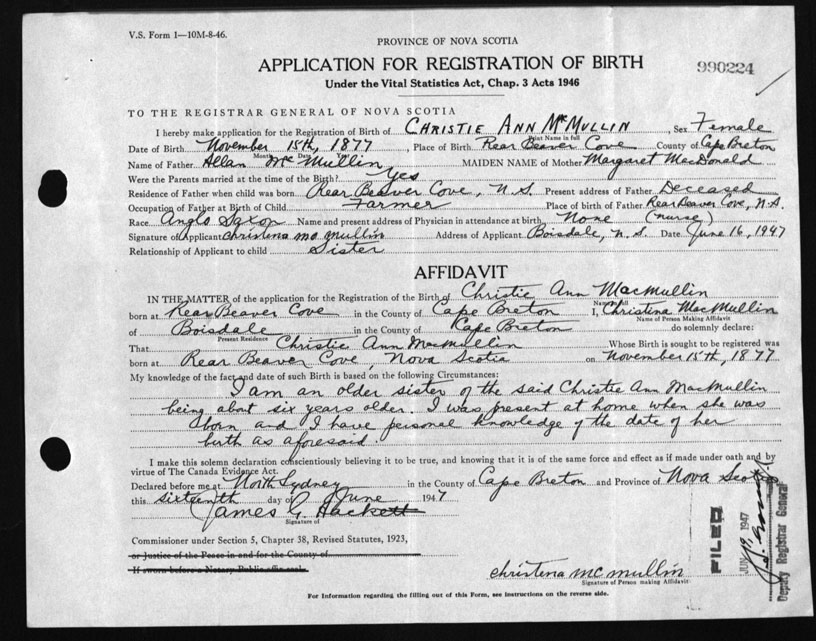 V.S. Form 1—10M-8-46.
PROVINCE OF NOVA SCOTIA
APPLICATION FOR REGISTRATION OF BIRTH
990224
Under the Vital Statistics Act, Chap. 3 Acts 1946
TO THE REGISTRAR GENERAL OF NOVA SCOTIA
I hereby make application for the Registration of Birth of CHRISTIE ANN McMULLIN, Sex Female
Print Name in full
Date of Birth November 15th, 1877, Place of Birth Rear Beaver Cove County of Cape Breton
Month Date Year
Name of Father Allan McMullin, MAIDEN NAME of Mother Margaret MacDonald
Were the Parents married at the time of the Birth? Yes
Residence of Father when child was born Rear Beaver Cove, N.S. Present address of Father Deceased
Occupation of Father at Birth of Child Farmer Place of birth of Father Rear Beaver Cove, N.S.
Race Anglo Saxon Name and present address of Physician in attendance at birth None (nurse)
Signature of Applicant Christena mc mullin Address of Applicant Boisdale, N.S. Date June 16, 1947
Relationship of Applicant to child Sister
AFFIDAVIT
IN THE MATTER of the application for the Registration of the Birth of Christie Ann MacMullin
Name in full
born at Rear Beaver Cove in the County of Cape Breton I, Christina MacMullin
Name of Person Making Affidavit
of Boisdale in the County of Cape Breton do solemnly declare:
Present Residence
That Christie Ann Macmullin Whose Birth is sought to be registered was
born at Rear Beaver Cove, Nova Scotia on November 15th, 1877
My knowledge of the fact and date of such Birth is based on the following Circumstances:
I am an older sister of the said Christie Ann MacMullin
being about six years older. I was present at home when she was
born and I have personal knowledge of the date of her
birth as aforesaid.
I make this solemn declaration conscientiously believing it to be true, and knowing that it is of the same force and effect as if made under oath and by
virtue of The Canada Evidence Act.
Declared before me at North Sydney in the County of Cape Breton and Province of Nova Scotia
this sixteenth day of June 1947
James G. Hackett
Signature of
Commissioner under Section 5, Chapter 38, Revised Statutes, 1923,
or Justice of the Peace in and for the County of
If sworn before a Notary Public affix seal.
christena mc mullin
Signature of Person making Affidavit
FILED
JUN 19 1947
Deputy Registrar General
For Information regarding the filling out of this Form, see instructions on the reverse side.